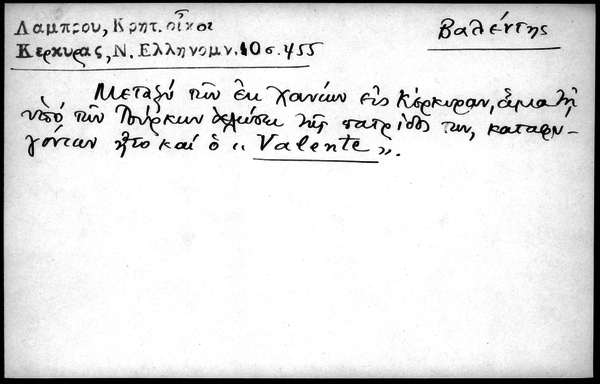 Λαμπρου, Κρητ. οἶκοι
Βαλέντης
Κερκυρας, Ν. Ελληνομν. 10 σ. 455
Μεταξύ τῶν ἐκ Χανίων εἰς Κέρκυραν, ἅμα τῇ
ὑπό τῶν Τούρκων ἁλώσει τῆς πατρίδος των, καταφυ-
γόντων ἦτο καί ὁ "Valente".